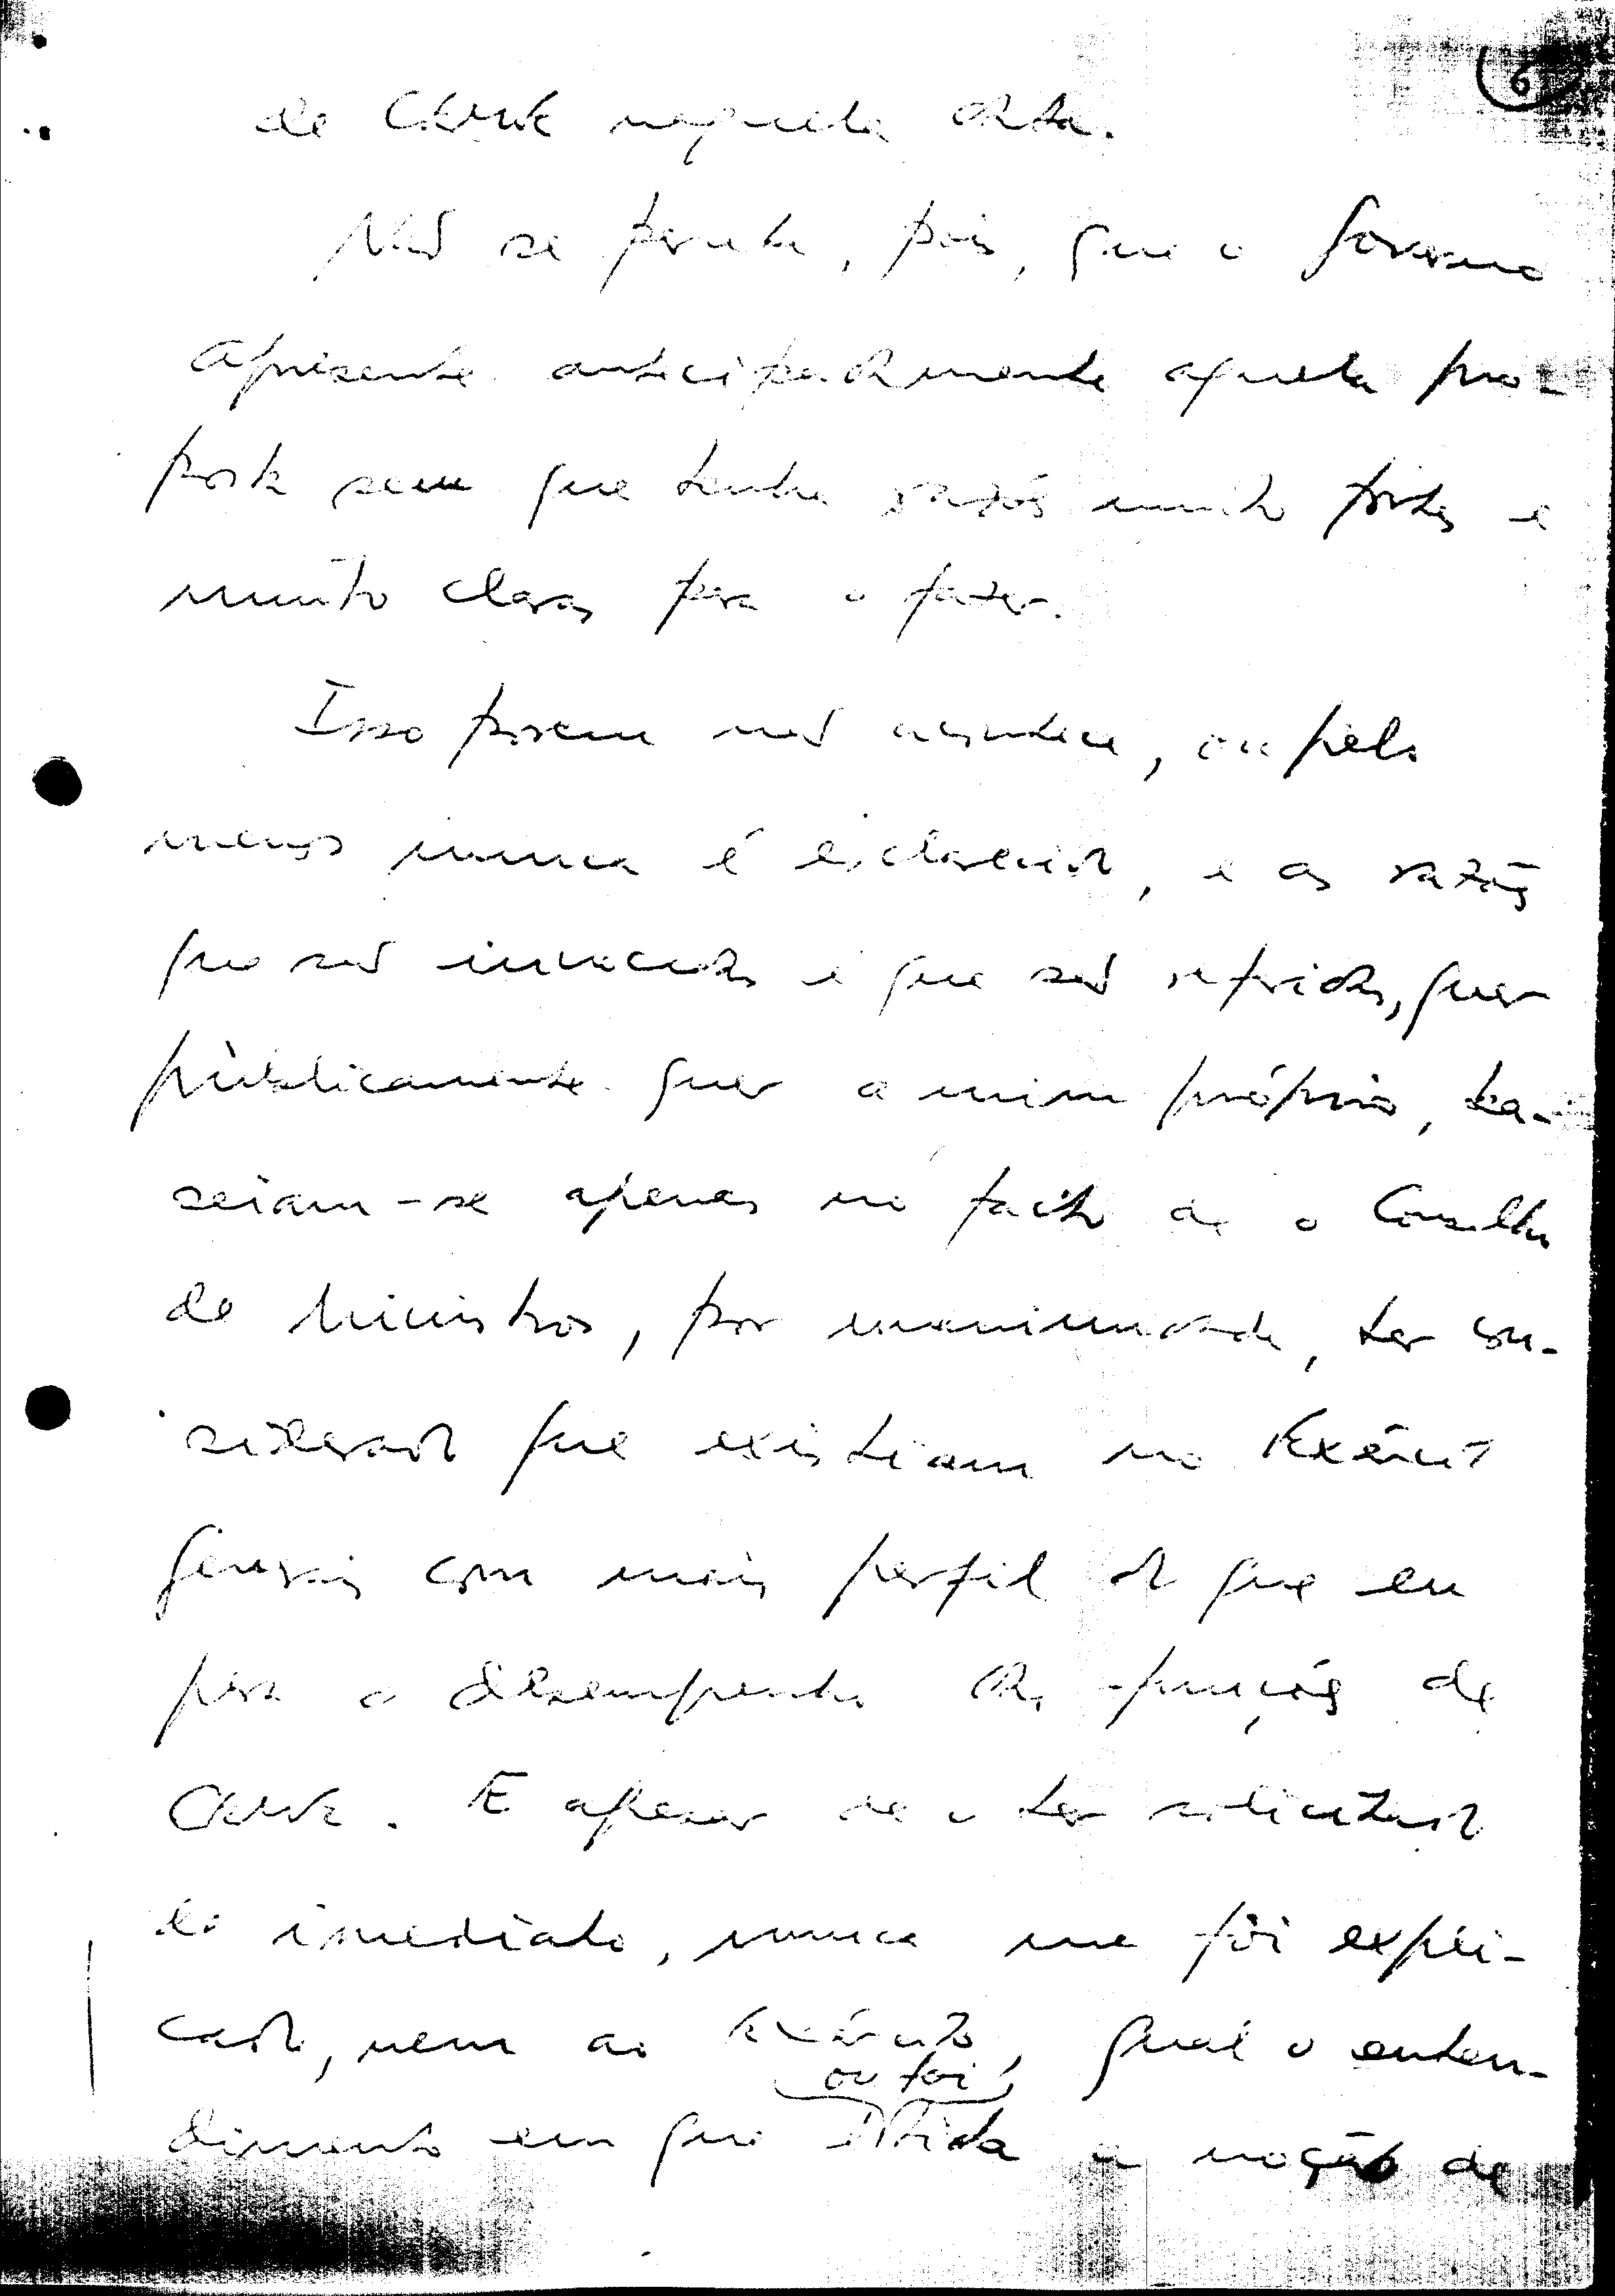 6
de CEME naquela data.
Não se permite, pois, que o Governo
apresente antecipadamente aquela pro-
posta sem que tenha razões muito fortes e
muito claras para o fazer.
Isso porém não acontece, ou pelo
menos nunca é esclarecido, e as razões
que são invocadas e que são referidas, quer
públicamente quer a mim próprio, ba-
seiam-se apenas no facto de o Conselho
de Ministros, por unanimidade, ter con-
siderado que existiam no Exército
generais com mais perfil do que eu
para o desempenho das funções de
CEME. E apesar de o ter solicitado
de imediato, nunca me foi expli-
cado, nem ao Exército, qual o enten-
ou foi
dimento em que é tida a noção de